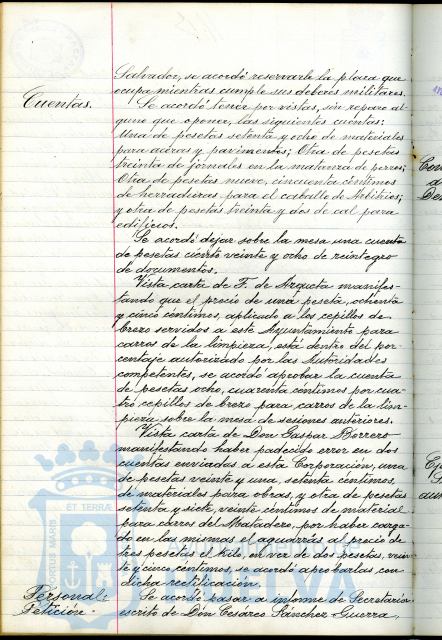 Salvador, se acordó reservarle la plaza que
ocupa mientras cumple sus deberes militares.
Cuentas.
Se acordó tener por vistas, sin reparo al-
guno que oponer, las siguientes cuentas:
Una de pesetas setenta y ocho de materiales
para aceras y pavimentos; Otra de pesetas
treinta de jornales en la matanza de perros;
Otra de pesetas nueve, cincuenta céntimos
de herraduras para el caballo de Arbitrios;
y otra de pesetas treinta y dos de cal para
edificios.
Se acordó dejar sobre la mesa una cuenta
de pesetas ciento veinte y ocho de reintegro
de documentos.
Vista carta de F. de Azqueta manifes-
tando que el precio de una peseta, ochenta
y cinco céntimos, aplicado a los cepillos de
brezo servidos a este Ayuntamiento para
carros de la limpieza, está dentro del por-
centaje autorizado por las Autoridades
competentes, se acordó aprobar la cuenta
de pesetas ocho, cuarenta céntimos por cua-
tro cepillos de brezo para carros de la lim-
pieza sobre la mesa de sesiones anteriores.
Vista carta de Don Gaspar Borrero
manifestando haber padecido error en dos
cuentas enviadas a esta Corporación, una
de pesetas veinte y una, setenta céntimos,
de materiales para obras, y otra de pesetas
setenta y siete, veinte céntimos de material
para carros del Matadero, por haber carga-
do en las mismas el aguarrás al precio de
tres pesetas el kilo, en vez de dos pesetas, vein-
te y cinco céntimos, se acordó aprobarlas, con
dicha rectificación.
Personal:
Petición.
Se acordó pasar a informe de Secretaría
escrito de Don Cesáreo Sánchez-Guerra,
PORTUS MARIS
ET TERRAE